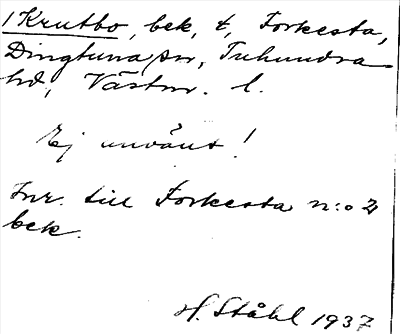 1 Krutbo, bek, t, Forkesta,
Dingtuna sn, Tuhundra
hd, Västm. l.
Ej använt!
Inr. till Forkesta n:o 2
bek.
H. Ståhl 1937